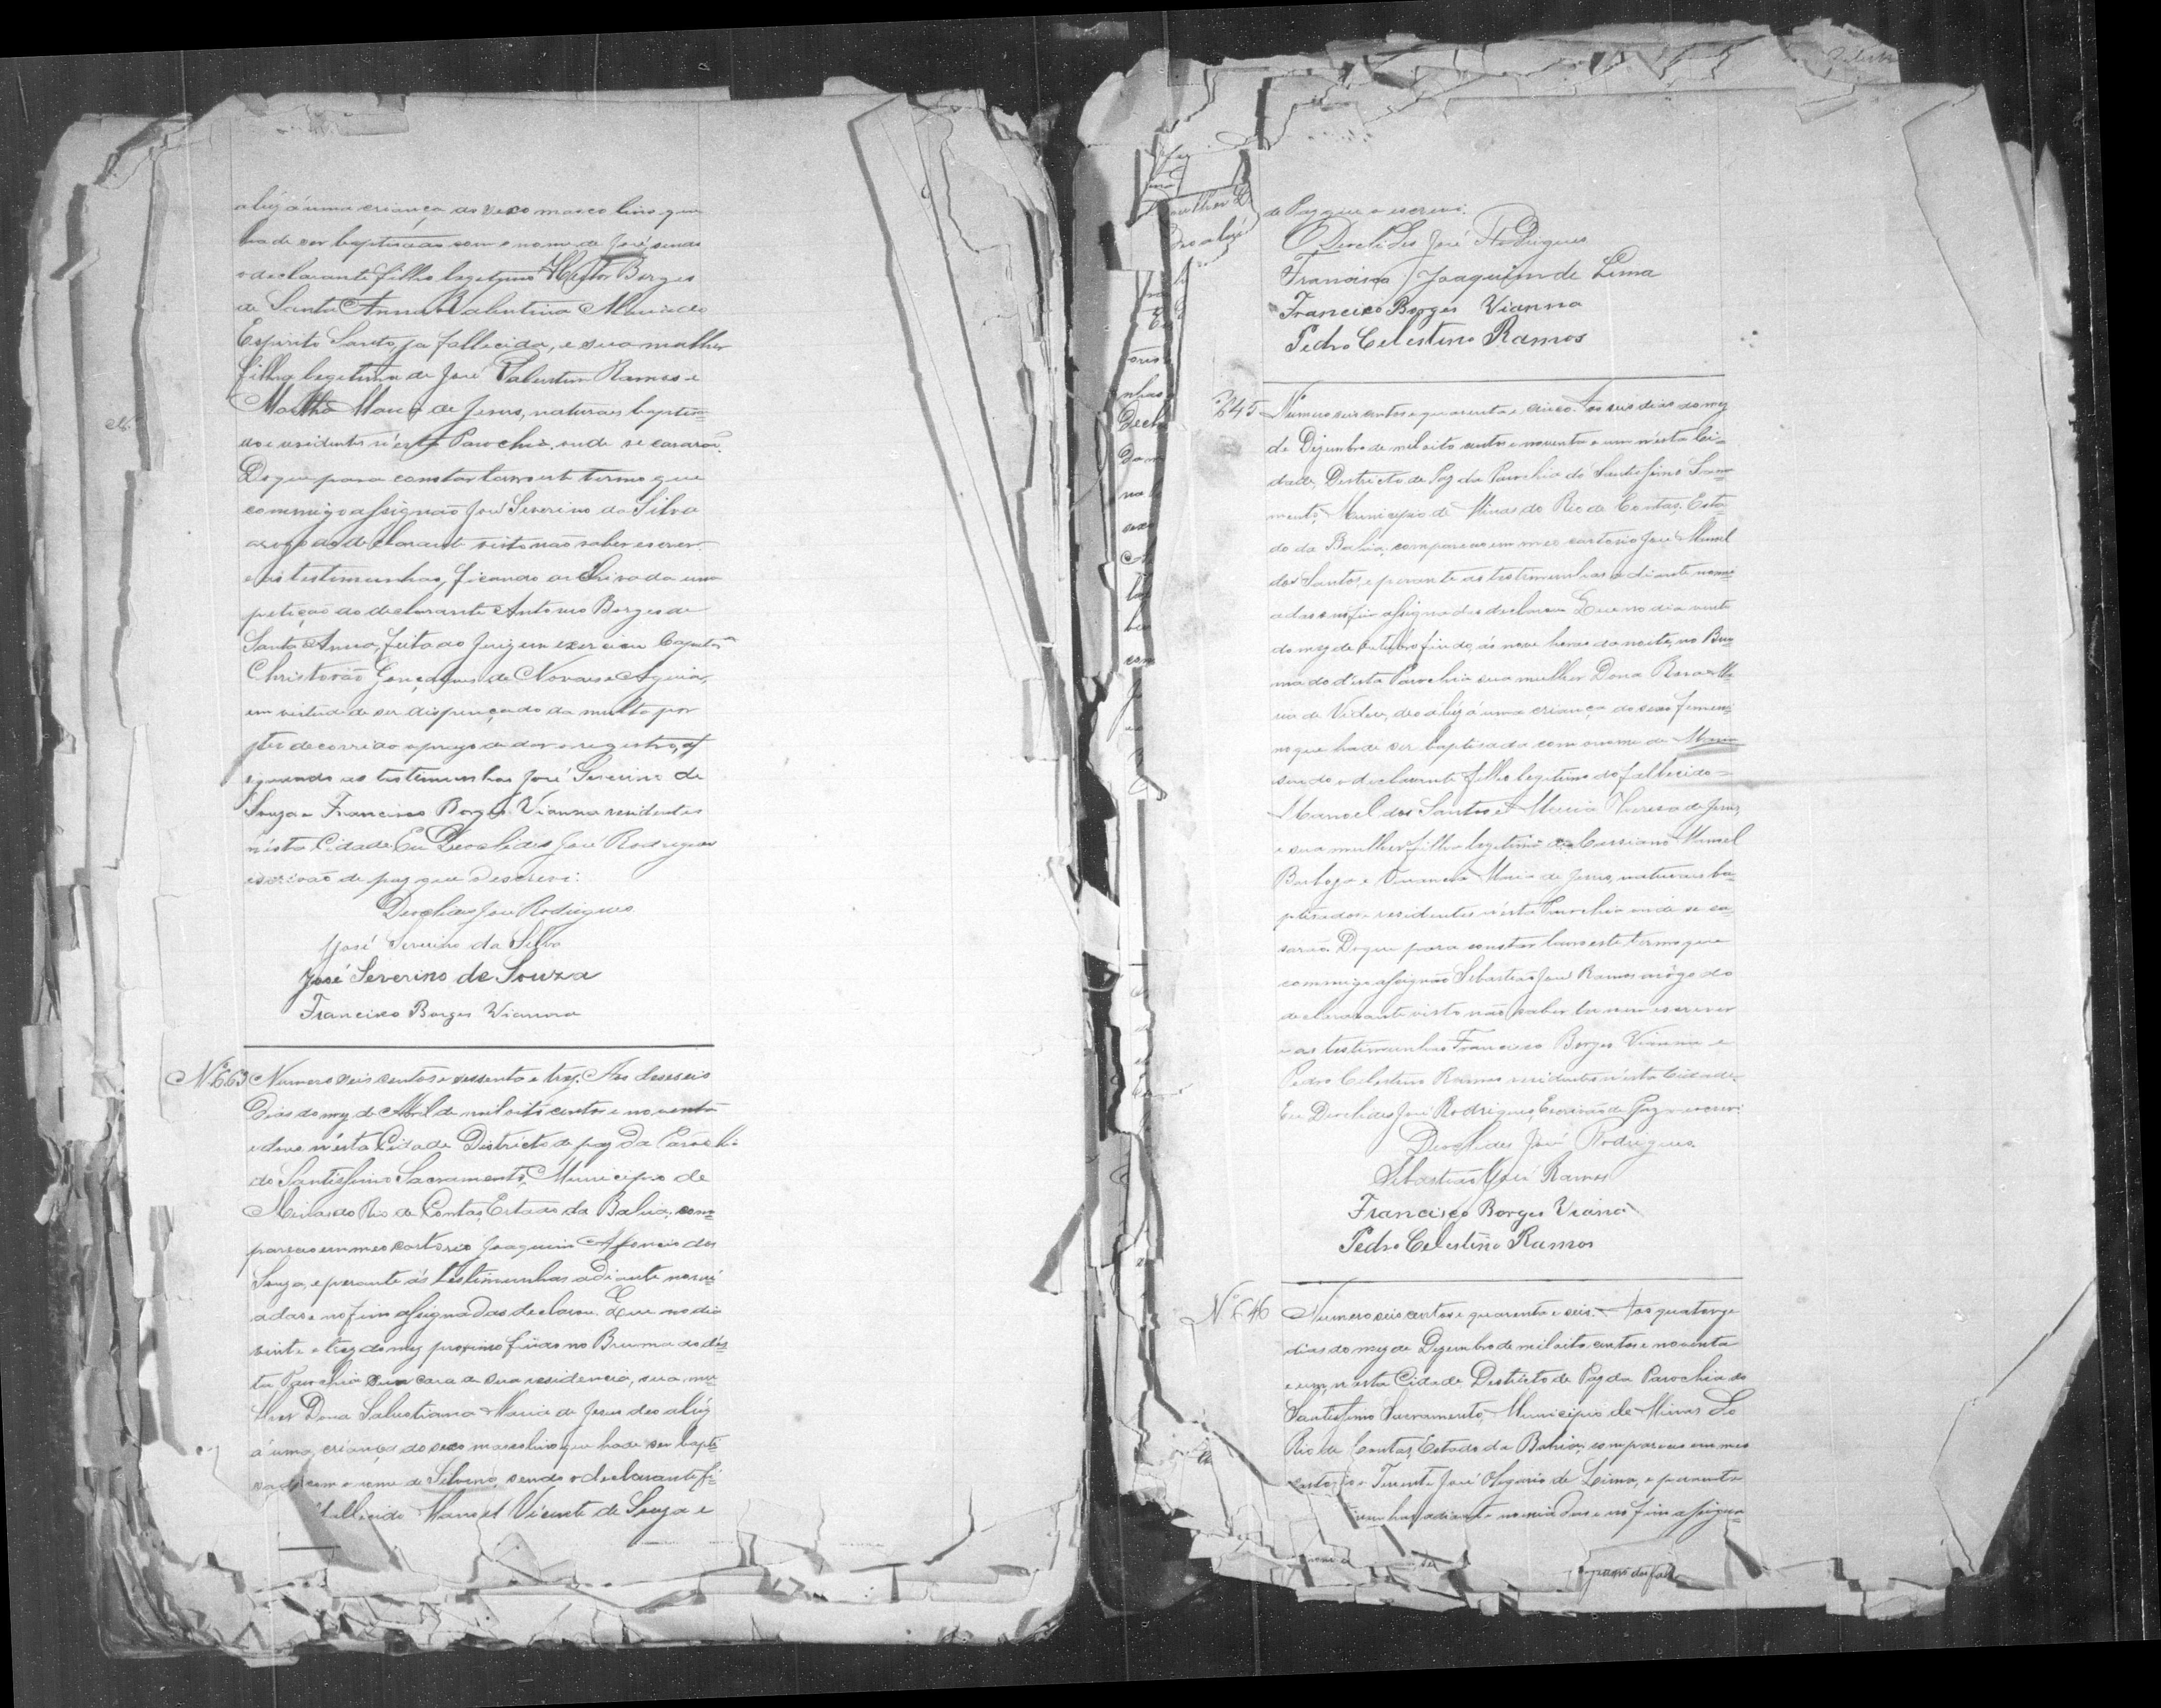 a luz á uma criança do sexo masculino que
hade ser baptisada com o nome de José, sendo
o declarante filho legitimo Heitor Borges
de Santa Anna Valentina Maria do
Espirito Santo, já fallecida, e sua mulher
filha legitima de José Ramos e
Martha Maria de Jesus, naturaes baptisa=
dos e residentes n'esta Parochia, onde se casarão.
Do que para constar lavro este termo que
commigo assignão José Severino da Silva
a rogo do declarante visto não saber escrever
e as testimunhas, ficando archivada uma
petição do declarante Antonio Borges de
Santa Anna, feita ao Juiz em exercicio Capitão
Christovão Gonçalves de Novaes e Aguiar,
em virtude de ser dispençado da multa por
ter decorrido o prazo de dar o registro, as
signando as testimunhas José Severino de
Souza e Francisco Borges Vianna residentes
n'esta Cidade Eu Deoclides José Rodrigues
escrivão de paz que o escrevi:
Deoclides José Rodrigues
José Severino da Silva
José Severino de Souza
Francisco Borges Vianna
Nº663 Numero seis centos e sessenta e trez. Aos deseseis
dias do mez de Abril de mil oito centos e noventa
e dous n'esta Cidade Districto de paz da Parochia
do Santissimo Sacramento, Municipio de
Minas do Rio de Contas, Estado da Bahia, com=
pareceo em meo cartorio Joaquim Afoncio de
Souza, e perante ás testimunhas adiante nomi=
adas e no fim assignadas declarou. Que no dia
vinte e trez do mez proximo findo no Brumado d'es=
ta Parochia em casa de sua residencia, sua mu=
lher Dona Salustiana Maria de Jesus deo a luz
á uma criança do sexo masculino que hade ser bapti=
sada com o nome de Silvino, sendo o declarante fi=
fallecido Manoel Vicente de Souza e
de Paz que o escrevi.
Deoclides José Rodrigues
Francisco Joaquim de Lima
Francisco Borges Vianna
Pedro Celestino Ramos
645 Numero seis centos e quarenta e cinco. Aos seis dias do mez
de Dezembro de mil oito centos e noventa e um n'esta Ci=
dade, Districto de Paz da Parochia do Santissimo Sacra
mento, Municipio de Minas do Rio de Contas, Esta=
do da Bahia, compareceo em meo cartorio José Manoel
dos Santos, e perante as testimunhas adiante nomi=
adas e no fim assignadas declarou Que no dia vinte
do mez de Outubro findo, ás nove horas da noite, no Bru=
mado d'esta Parochia sua mulher Dona Rosa Ma=
ria de deo a luz á uma criança do sexo femeni=
no que hade ser baptisada com o nome de Maria
sendo o declarante filho legitimo do fallecido=
Manoel dos Santos e Maria Thereza de Jesus,
e sua mulher filha legitima de Cassiano Manoel
Maria de Jesus, naturaes ba=
ptisados e residentes n'esta Parochia onde se ca=
sarão. Do que para constar lavro este termo que
commigo assignão Sebastião José Ramos a rôgo do
declarante visto não saber ler nem escrever
e as testimunhas Francisco Borges Vianna e
Pedro Celestino Ramos residentes n'esta Cidade.
Eu Deoclides José Rodrigues, Escrivão de Paz o escrevi
Deoclides José Rodrigues
Sebastião José Ramos
Francisco Borges Viana
Pedro Celestino Ramos
Nº646 Numero seis centos e quarenta e seis. Aos quatorze
dias do mez de Dezembro de mil oito centos e noventa
e um, n'esta Cidade Districto de Paz da Parochia do
Santissimo Sacramento, Municipio de Minas do
Rio de Contas, Estado da Bahia, compareceo em meo
cartorio o Tenente José Olegario de Lima, e perante
adiante nomiadas e no fim assigna=